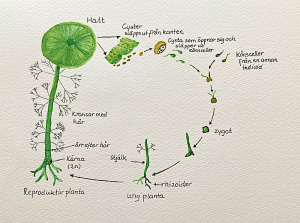 Hatt
Cystor
släpps ut från kanten
Cysta som öppnar sig och
släpper ut
könsceller
Könsceller
från en annan
individ
Kransar med
hår
Ärr efter hår
Kärna
(2n)
Stjälk
zygot
rhizoider
Reproduktiv planta
Ung planta